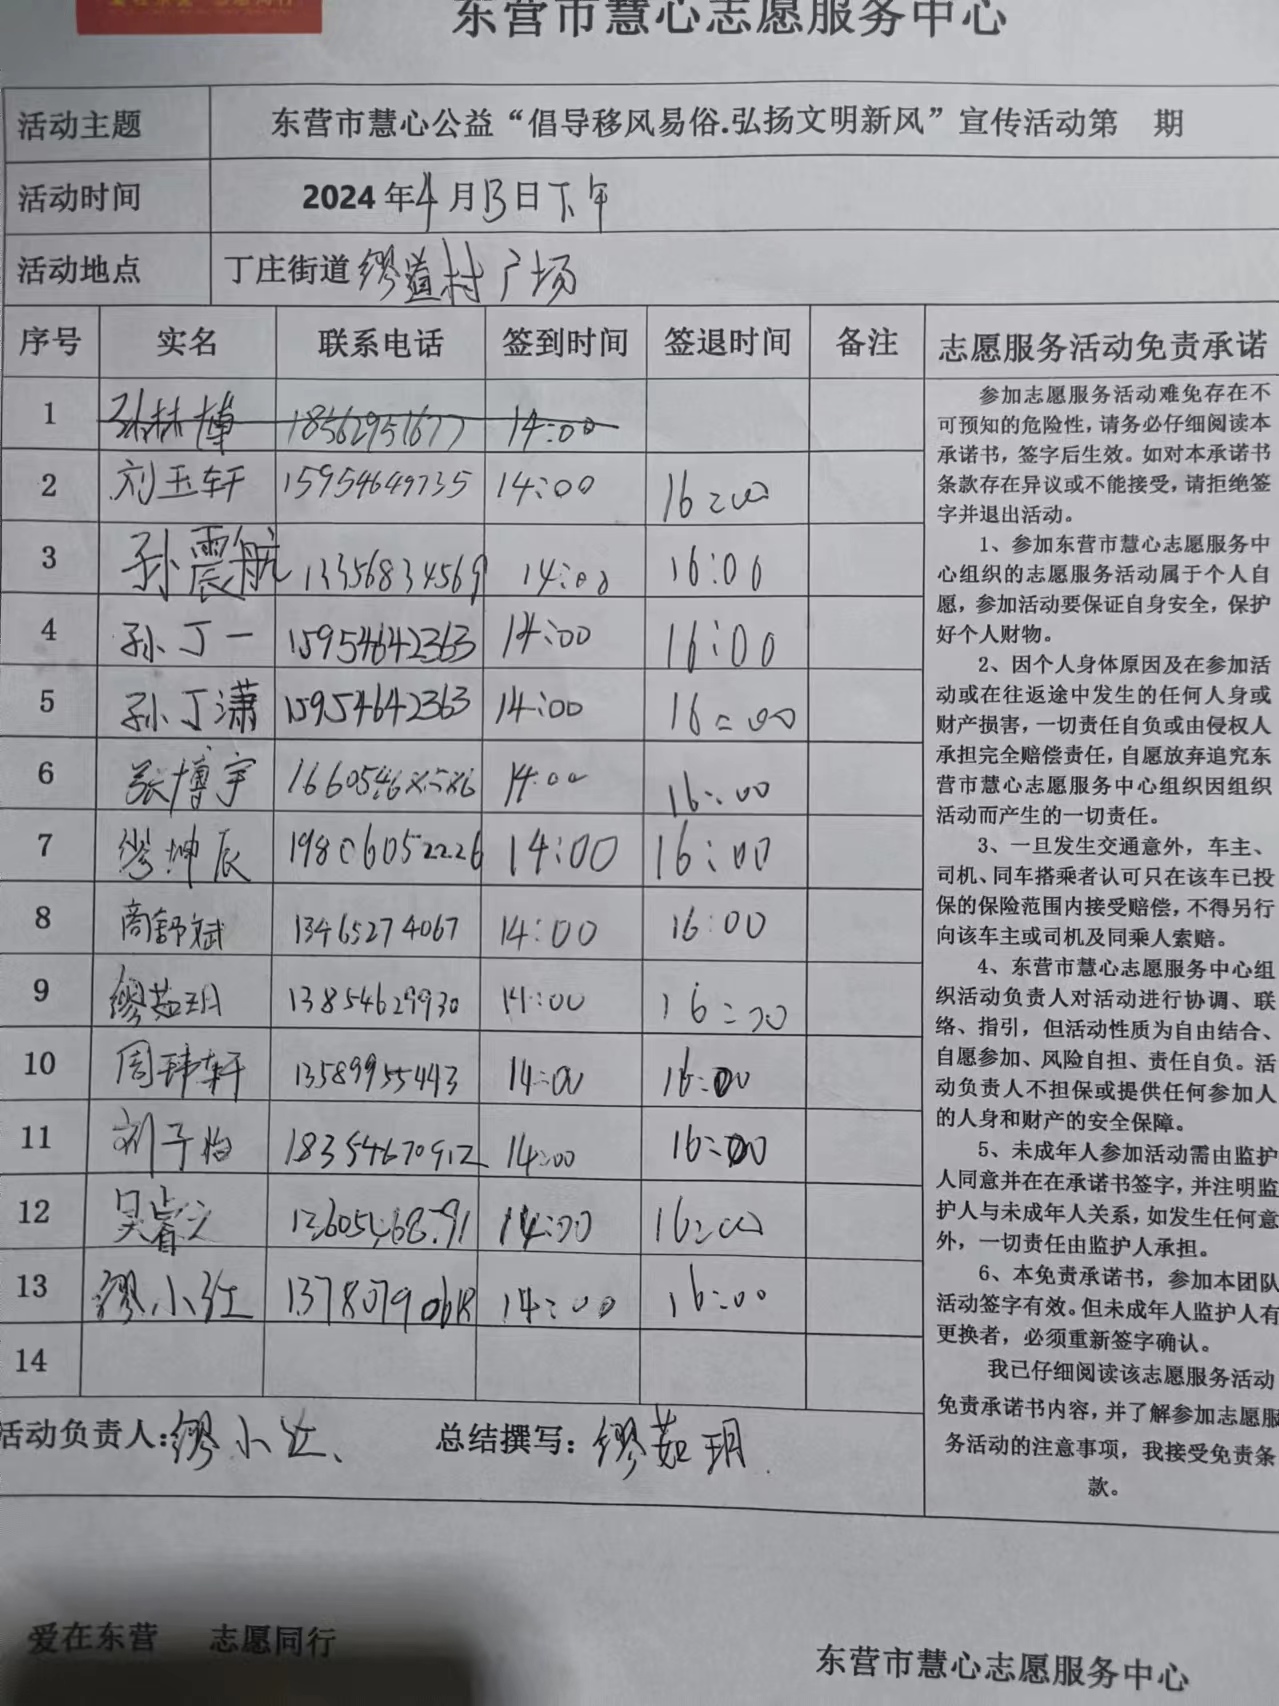 东营市慧心志愿服务中心
活动主题 东营市慧心公益“倡导移风易俗.弘扬文明新风”宣传活动第 期
活动时间 2024年4月13日下午
活动地点 丁庄街道缪道村广场
序号 实名 联系电话 签到时间 签退时间 备注
1 孙林博 18562951677 14:00
2 刘玉轩 15954649735 14:00 16:00
3 孙震航 13356834569 14:00 16:00
4 孙丁一 15954642363 14:00 16:00
5 孙丁潇 15954642363 14:00 16:00
6 张博宇 14:00 16:00
7 缪坤辰 19806052226 14:00 16:00
8 商舒斌 13465274067 14:00 16:00
9 缪茹玥 13854629930 14:00 16:00
10 周玮轩 13589955443 14:00 16:00
11 刘子怡 18354670912 14:00 16:00
12 吴睿之 14:00 16:00
13 缪小红 14:00 16:00
14
活动负责人:缪小红、 总结撰写:缪茹玥.
志愿服务活动免责承诺
参加志愿服务活动难免存在不
可预知的危险性,请务必仔细阅读本
承诺书,签字后生效。如对本承诺书
条款存在异议或不能接受,请拒绝签
字并退出活动。
1、参加东营市慧心志愿服务中
心组织的志愿服务活动属于个人自
愿,参加活动要保证自身安全,保护
好个人财物。
2、因个人身体原因及在参加活
动或在往返途中发生的任何人身或
财产损害,一切责任自负或由侵权人
承担完全赔偿责任,自愿放弃追究东
营市慧心志愿服务中心组织因组织
活动而产生的一切责任。
3、一旦发生交通意外,车主、
司机、同车搭乘者认可只在该车已投
保的保险范围内接受赔偿,不得另行
向该车主或司机及同乘人索赔。
4、东营市慧心志愿服务中心组
织活动负责人对活动进行协调、联
络、指引,但活动性质为自由结合、
自愿参加、风险自担、责任自负。活
动负责人不担保或提供任何参加人
的人身和财产的安全保障。
5、未成年人参加活动需由监护
人同意并在在承诺书签字,并注明监
护人与未成年人关系,如发生任何意
外,一切责任由监护人承担。
6、本免责承诺书,参加本团队
活动签字有效。但未成年人监护人有
更换者,必须重新签字确认。
我已仔细阅读该志愿服务活动
免责承诺书内容,并了解参加志愿服
务活动的注意事项,我接受免责条
款。
爱在东营 志愿同行
东营市慧心志愿服务中心